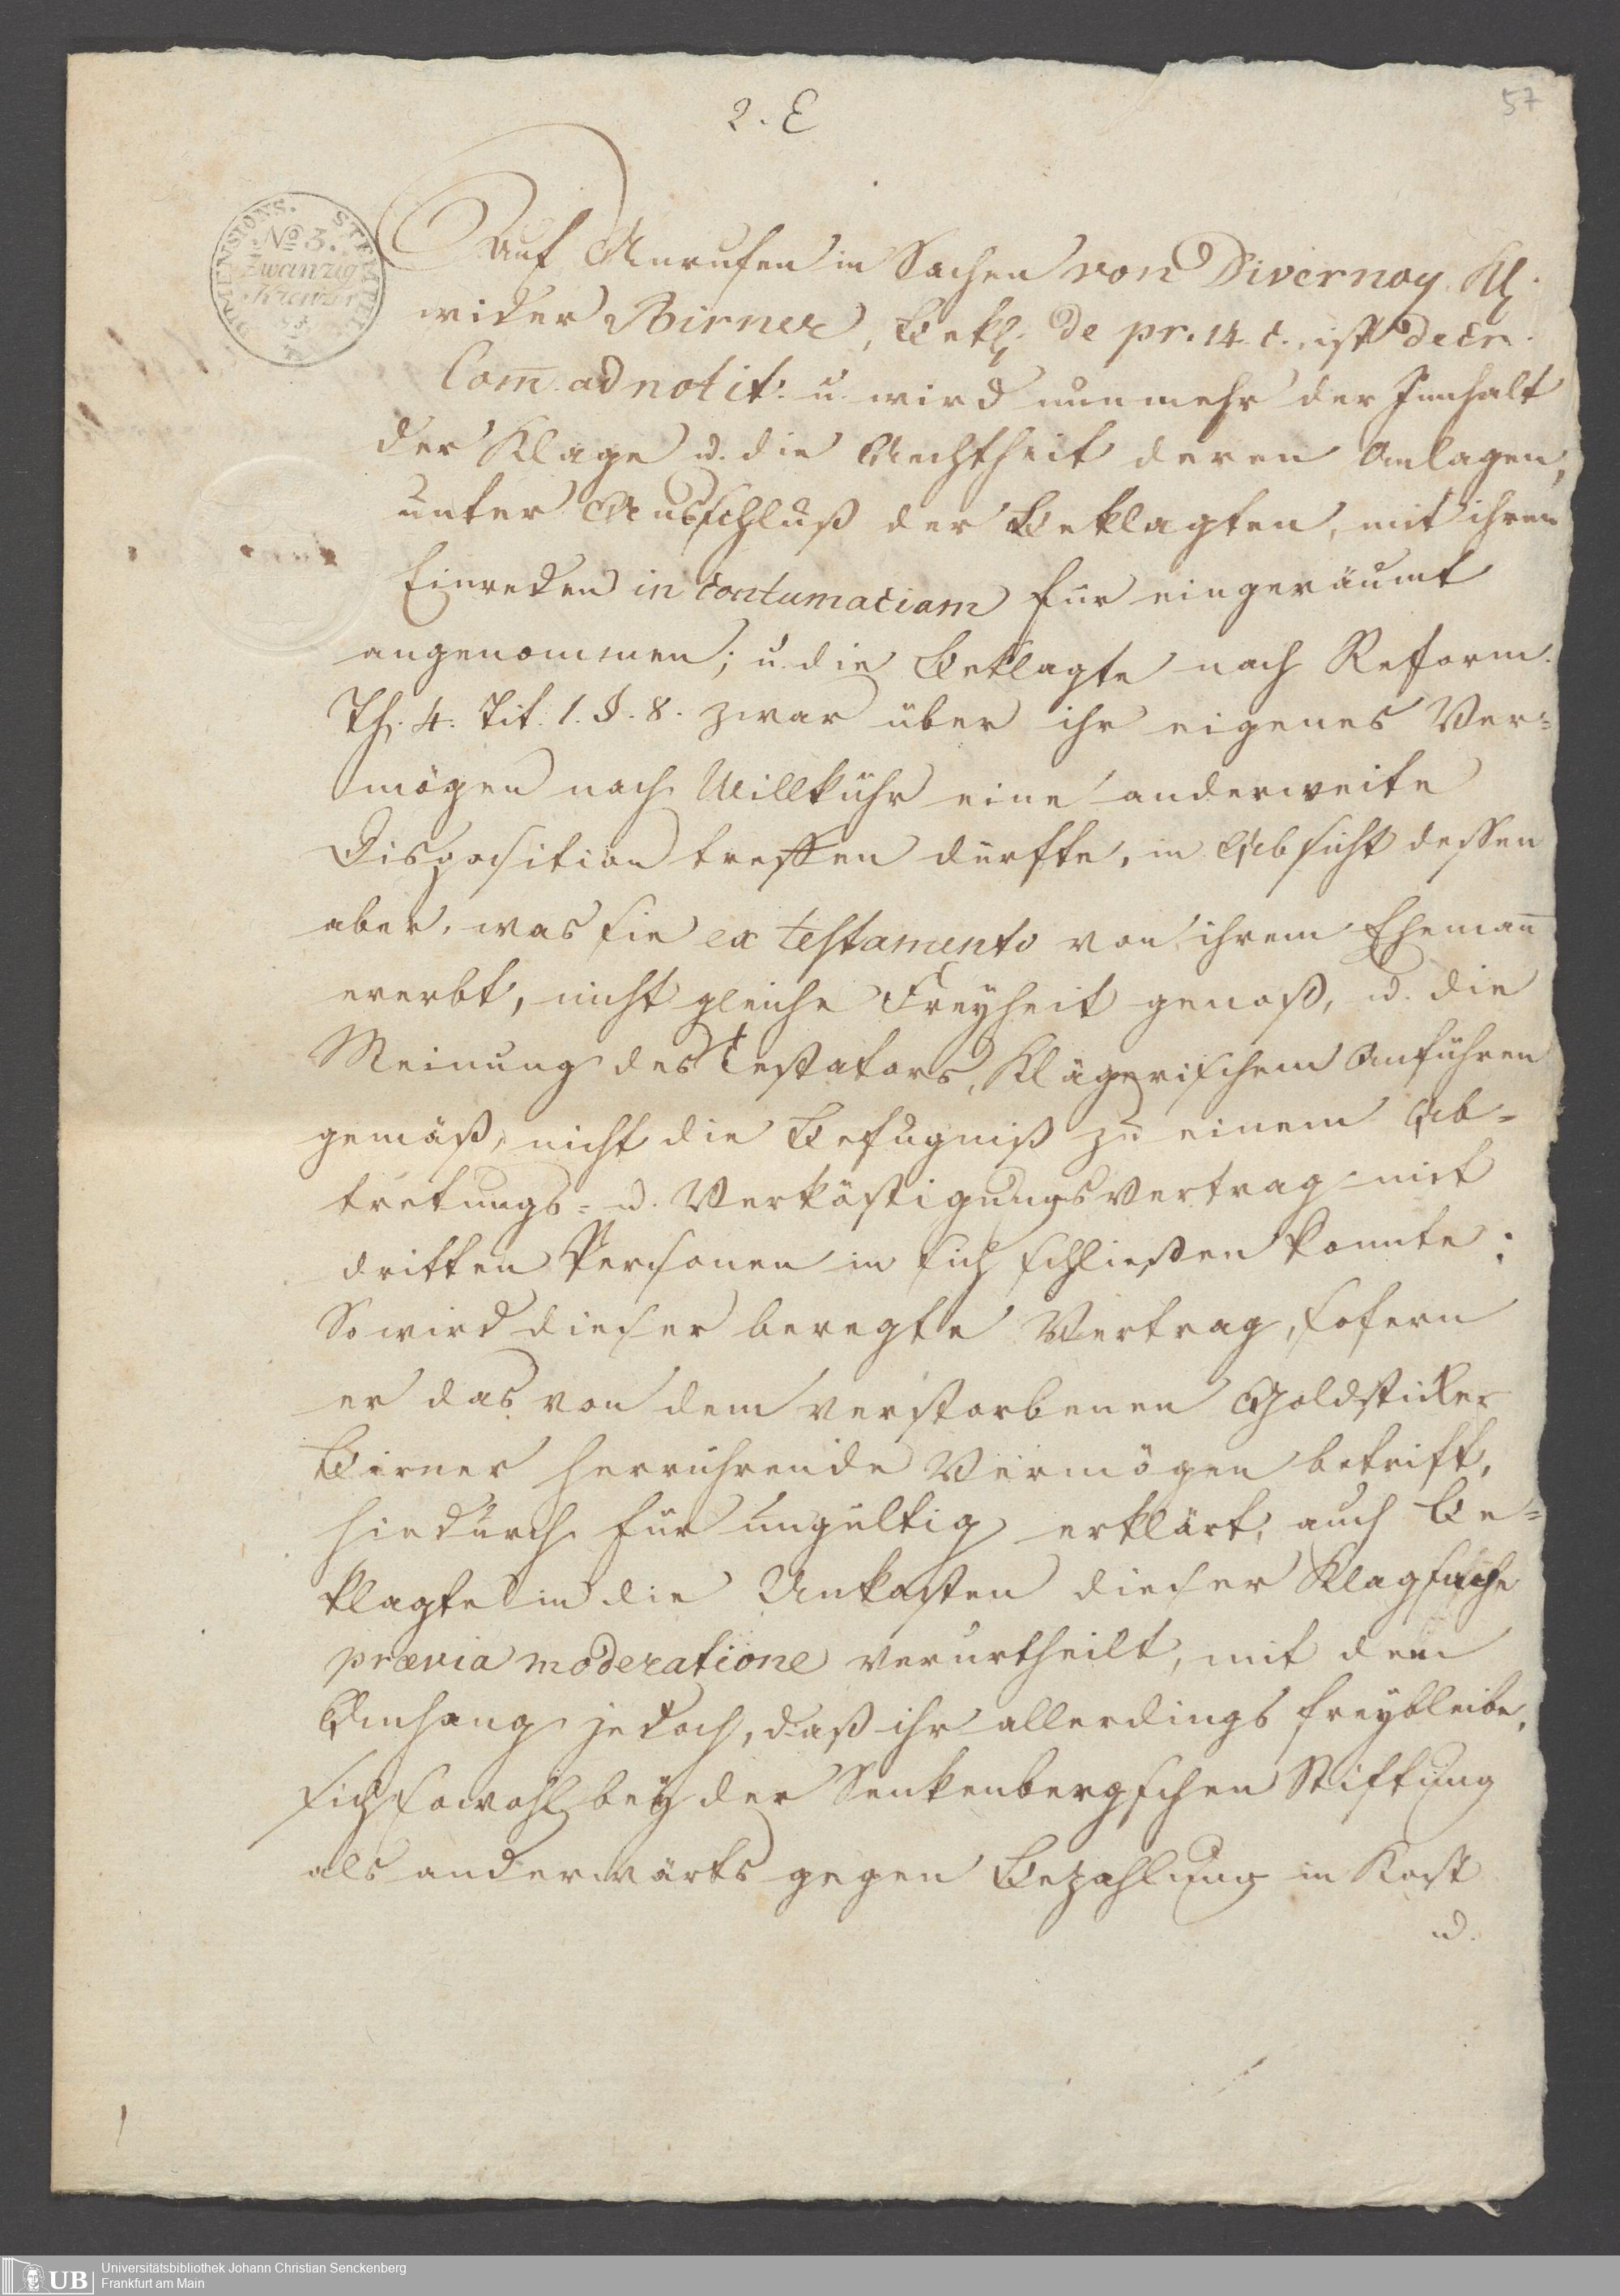 2. E
57
DIMENSIONS. STEMPEL
No 3.
Zwanzig
Kreuzer
Auf Anrufen in Sachen von Divernoy Kl.
wider Birner, Bekl. de pr. 14. c. ist decr.
Com̄. ad notit. u. wird nunmehr der Innhalt
der Klage u. die Aechtheit deren Anlagen,
unter Ausschluß der Beklagten, mit ihren
Einreden in contumaciam für eingeräumt
angenommen; u. die Beklagte nach Reform.
Th. 4. Tit. 1. §. 8. zwar über ihr eigenes Ver=
mögen nach Willkühr eine anderweite
Disposition treffen durfte, in Absicht dessen
aber, was sie ex testamento von ihrem Ehemañ
ererbt, nicht gleiche Freyheit genoß, u. die
Meinung des Testators, Klägerischem Anführen
gemäß, nicht die Befugniß zu einem Ab=
tretungs= u. Verköstigungsvertrag mit
dritten Personen in sich schließen konnte:
So wird dieser beregte Vertrag, sofern
er das von dem verstorbenen Goldsticker
Birner herrührende Vermögen betrift,
hiedurch für ungültig erklärt, auch Be=
klagte in die Unkosten dieser Klagsache
prævia moderatione verurtheilt, mit dem
Anhang jedoch, daß ihr allerdings freybleibe,
sich sowohl bey der Senkenbergschen Stiftung
als anderwärts gegen Bezahlung in Kost
u.
UB
Universitätsbibliothek Johann Christian Senckenberg
Frankfurt am Main